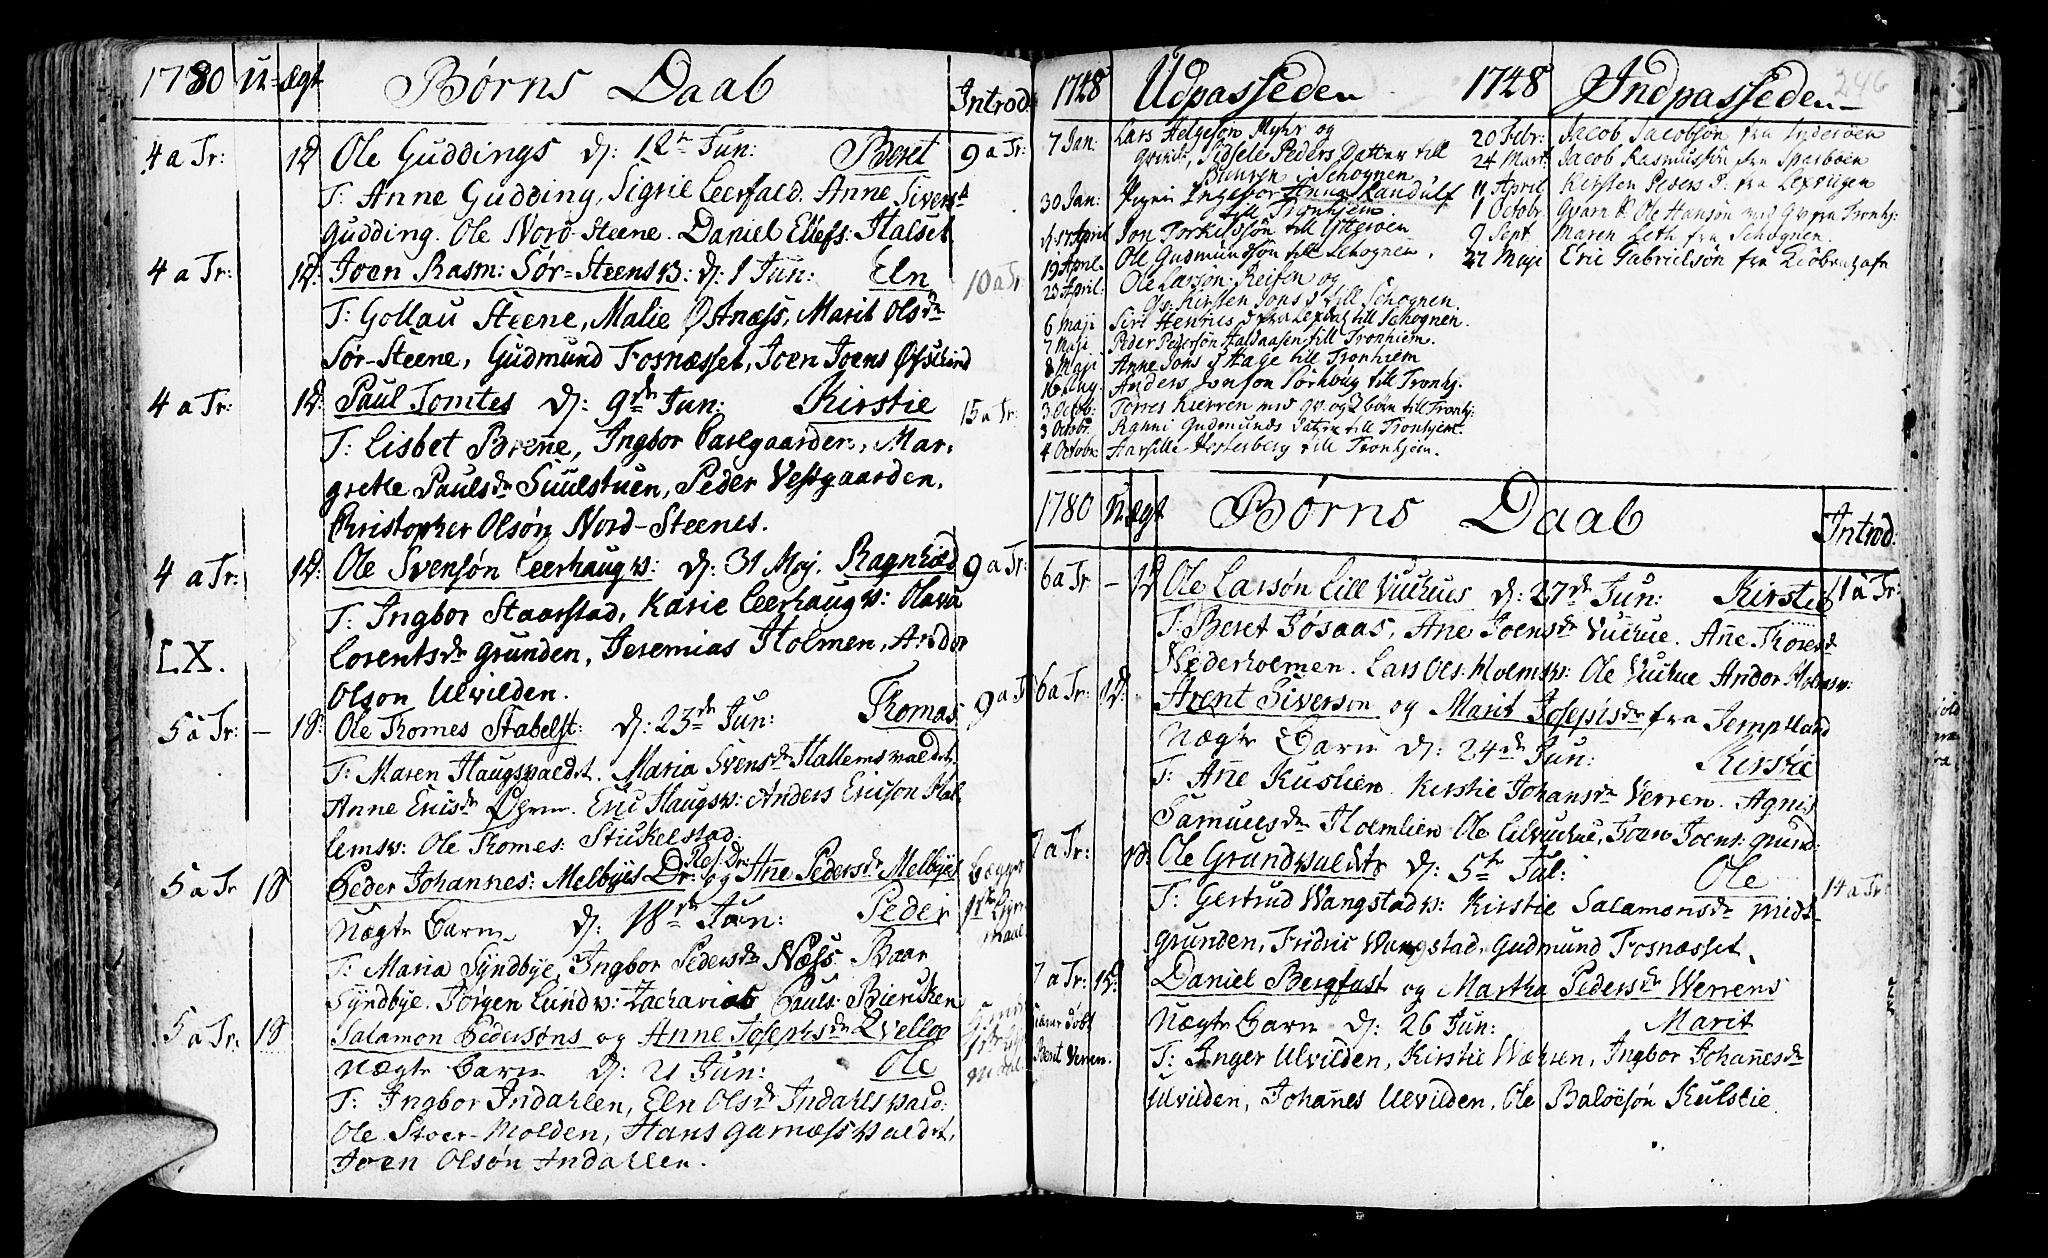 1780 U- ægt Børns Daab Introd.
4 a Tr: 1D. Ole Guddings d: 12te Jun: Beret 9 a Tr:
T: Anne Gudding, Sigrie Leerfald. Anne Sivers d
Gudding. Ole Nord-Steene. Daniel Ellefs: Halset
4 a Tr: 1D. Joen Rasm: Sør-Steensv: d: 1 Jun: Eln 10 a Tr
T: Gollau Steene, Malie Østnæss, Marit Olsdr
Sør-Steene, Gudmund Fosnæsset, Joen Joens
4 a Tr: 1D. Paul Tomtes d: 9de Jun: Kirstie 15 a Tr.
T: Lisbet Brenne, Ingbor Carlgaarden, Mar-
grethe Paulsdr Suulstuen, Peder Vestgaarden.
Christopher Olsøn Nord-Steenes.
4 a Tr: 1D: Ole Svensøn Leerhaugv: d: 31 Maj. Ragnhild 9 a Tr:
T: Ingbor Staarstad, Karie Leerhaugv: Olava
Lorentsdr grunden, Jeremias Holmen, Andor
LX.
Olson Ulvilden.
5 a Tr: - 1S: Ole Thomes Stabelst: d: 23de Jun: Thomas 9 a Tr
T: Maren Haugsvaldet. Maria Svensdr Hallemsvaldet.
Anne Ericsdr Eric Haugsv: Anders Ericson Hal-
lemsv: Ole Thomes: Stikelstad.
5 a Tr 1S Peder Johannes: Melbyes og Anne Pedersdr Melbyes
Uægte Barn d: 18de Jun: Peder
T: Maria Syndbye, Ingbor Pedersdr Næss Baar
Syndbye. Jørgen Lundv: Zacharias Pauls: Biercken
5 a Tr. 1S Salamon Pedersøns og Anne Josephsdr Qvelloe
Uægte Barn d: 21 Jun: Ole
T: Ingbor Indahlen, Eln Olsdr Indahlsvald:
Ole Stoer-Molden, Hans Garnæssvaldet,
Joen Olsøn Indahlen.
1748 Udpasseden
7 Jan: Lars Helgesøn Myhr og
Sidsele Peders Datter till
Schognen
30 Jan: Ingebor Anna Randulf
till Tronhjem.
17 April Jon Torkilssøn till Ytterøen
19 April. Ole Gudmundssøn till Schognen.
23 April: Ole Larsøn Reifen og
Kirsten Jons d till Schognen.
6 Maji Siri Henrics d fra Lexvig till Schognen.
7 Maji Peder Pedersøn Haldaasen till Tronhiem.
8 Maji Anne Jons d Hage till Tronhiem
16 Aug. Anders Jonsøn Sørhoug till Tronhj.
3 Octob: Torres Kierren med qv. og 2 børn till Tronhj:
3 Octobr. Ranni Gudmunds till Tronhjem.
4 Octobr. Hesterberg till Tronhjem.
1748 Indpasseden 246
20 Febr: Jacob Jacobsøn fra Inderøen
24 Mart: Jacob Rasmussøn fra Sparboen
11 April Kirsten Peders D: fra Lexvigen
1 Octobr. Ole Hansøn med qv fra Tronhj:
9 Sept Maren Leth fra Schognen.
27 Maji Eric Gabrielsøn fra Kiøbenhafn
1780 U ægt Børns Daab Introd.
6 a Tr - 1D Ole Larsøn Lill Vuckus d: 27de Jun: Kirstie 11 a Tr:
T: Beret Jøsaas, Ane Joensdr Vuckue. Anne Thoresdr
Nederholmen. Lars Ols: Holmsv: Ole Vuckue Andor Holmsv:
6 a Tr: 1D: Arent Siverson og Marit Josephsdr fra Jemptland
Uægte Barn d: 24de Jun: Kirstie
T: Anne Kuslien. Kirstie Johansdr Verren. Agnis
Samuelsdr Holmlien Ole Lilvuckue, Joen Joens: grund:
7 a Tr: 1D. Ole Grundvaldts d: 5te Jul: Ole 14 a Tr
T: Gertrud Wangstadv: Kirstie Salamonsdr Midt-
grunden, Fridric Wangstad. Gudmund Fosnæsset.
7 a Tr: 1D. Daniel Bergfast og Martha Pedersdr Werrens
døbt Uægte Barn d: 26 Jun: Marit
Beret Verren. T: Inger Ulvilden, Kirstie Ingbor Johannesdr
Ulvilden, Johannes Ulvilden. Ole Baloesøn Kulslie.